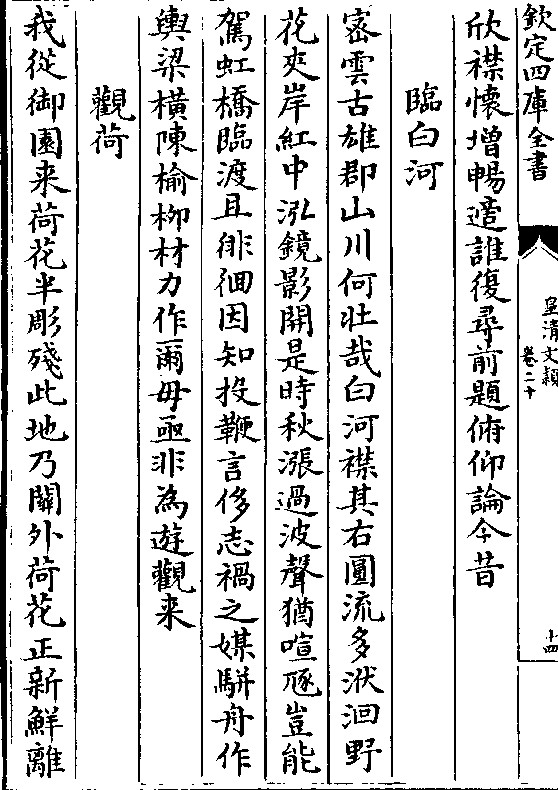 欽定四庫全書
皇清文穎
卷二十
十四
欣襟懷增暢適誰復尋前題俯仰論今昔
臨白河
宻雲古雄郡山川何壯哉白河襟其右圓流多洑洄野
花夾岸紅中泓鏡影開是時秋漲過波聲猶喧豗豈能
駕虹橋臨渡且徘徊因知投鞭言侈志禍之媒駢舟作
輿梁橫陳榆栁材力作爾毋亟非為遊觀来
觀荷
我從御園来荷花半彫殘此地乃關外荷花正新鮮離